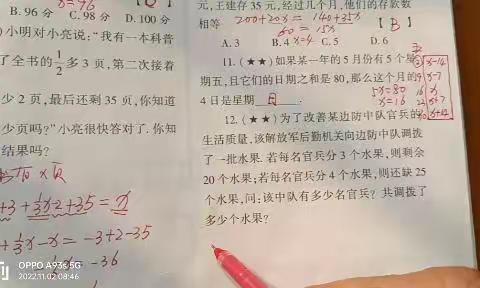 B. 96 分 C. 98 分 D. 100 分
小明对小亮说:“我有一本科普
了全书的1/2多 3 页,第二次接着
少 2 页,最后还剩 35 页,你知道
少页吗?”小亮很快答对了.你知
结果吗?
+3+1/3x-2+35=x
+1/3x-x=-3+2-35
=-36
元,王建存 35 元,经过几个月,他们的存款数
相等 200+20x=140+35x 【B】
60=15x
A. 3 B. 4 x=4 C. 5 D. 6
11. (★★)如果某一年的 5 月份有 5 个星
期五,且它们的日期之和是 80,那么这个月的
5x=80
4 日是星期 日 .
x=16
x-14
x-7
x
x+7
12. (★★)为了改善某边防中队官兵的
生活质量,该解放军后勤机关向边防中队调拨
了一批水果.若每名官兵分 3 个水果,则剩余
20 个水果;若每名官兵分 4 个水果,则还缺 25
个水果,问:该中队有多少名官兵?共调拨了
多少个水果?
OPPO A93s 5G
2022.11.02 08:46